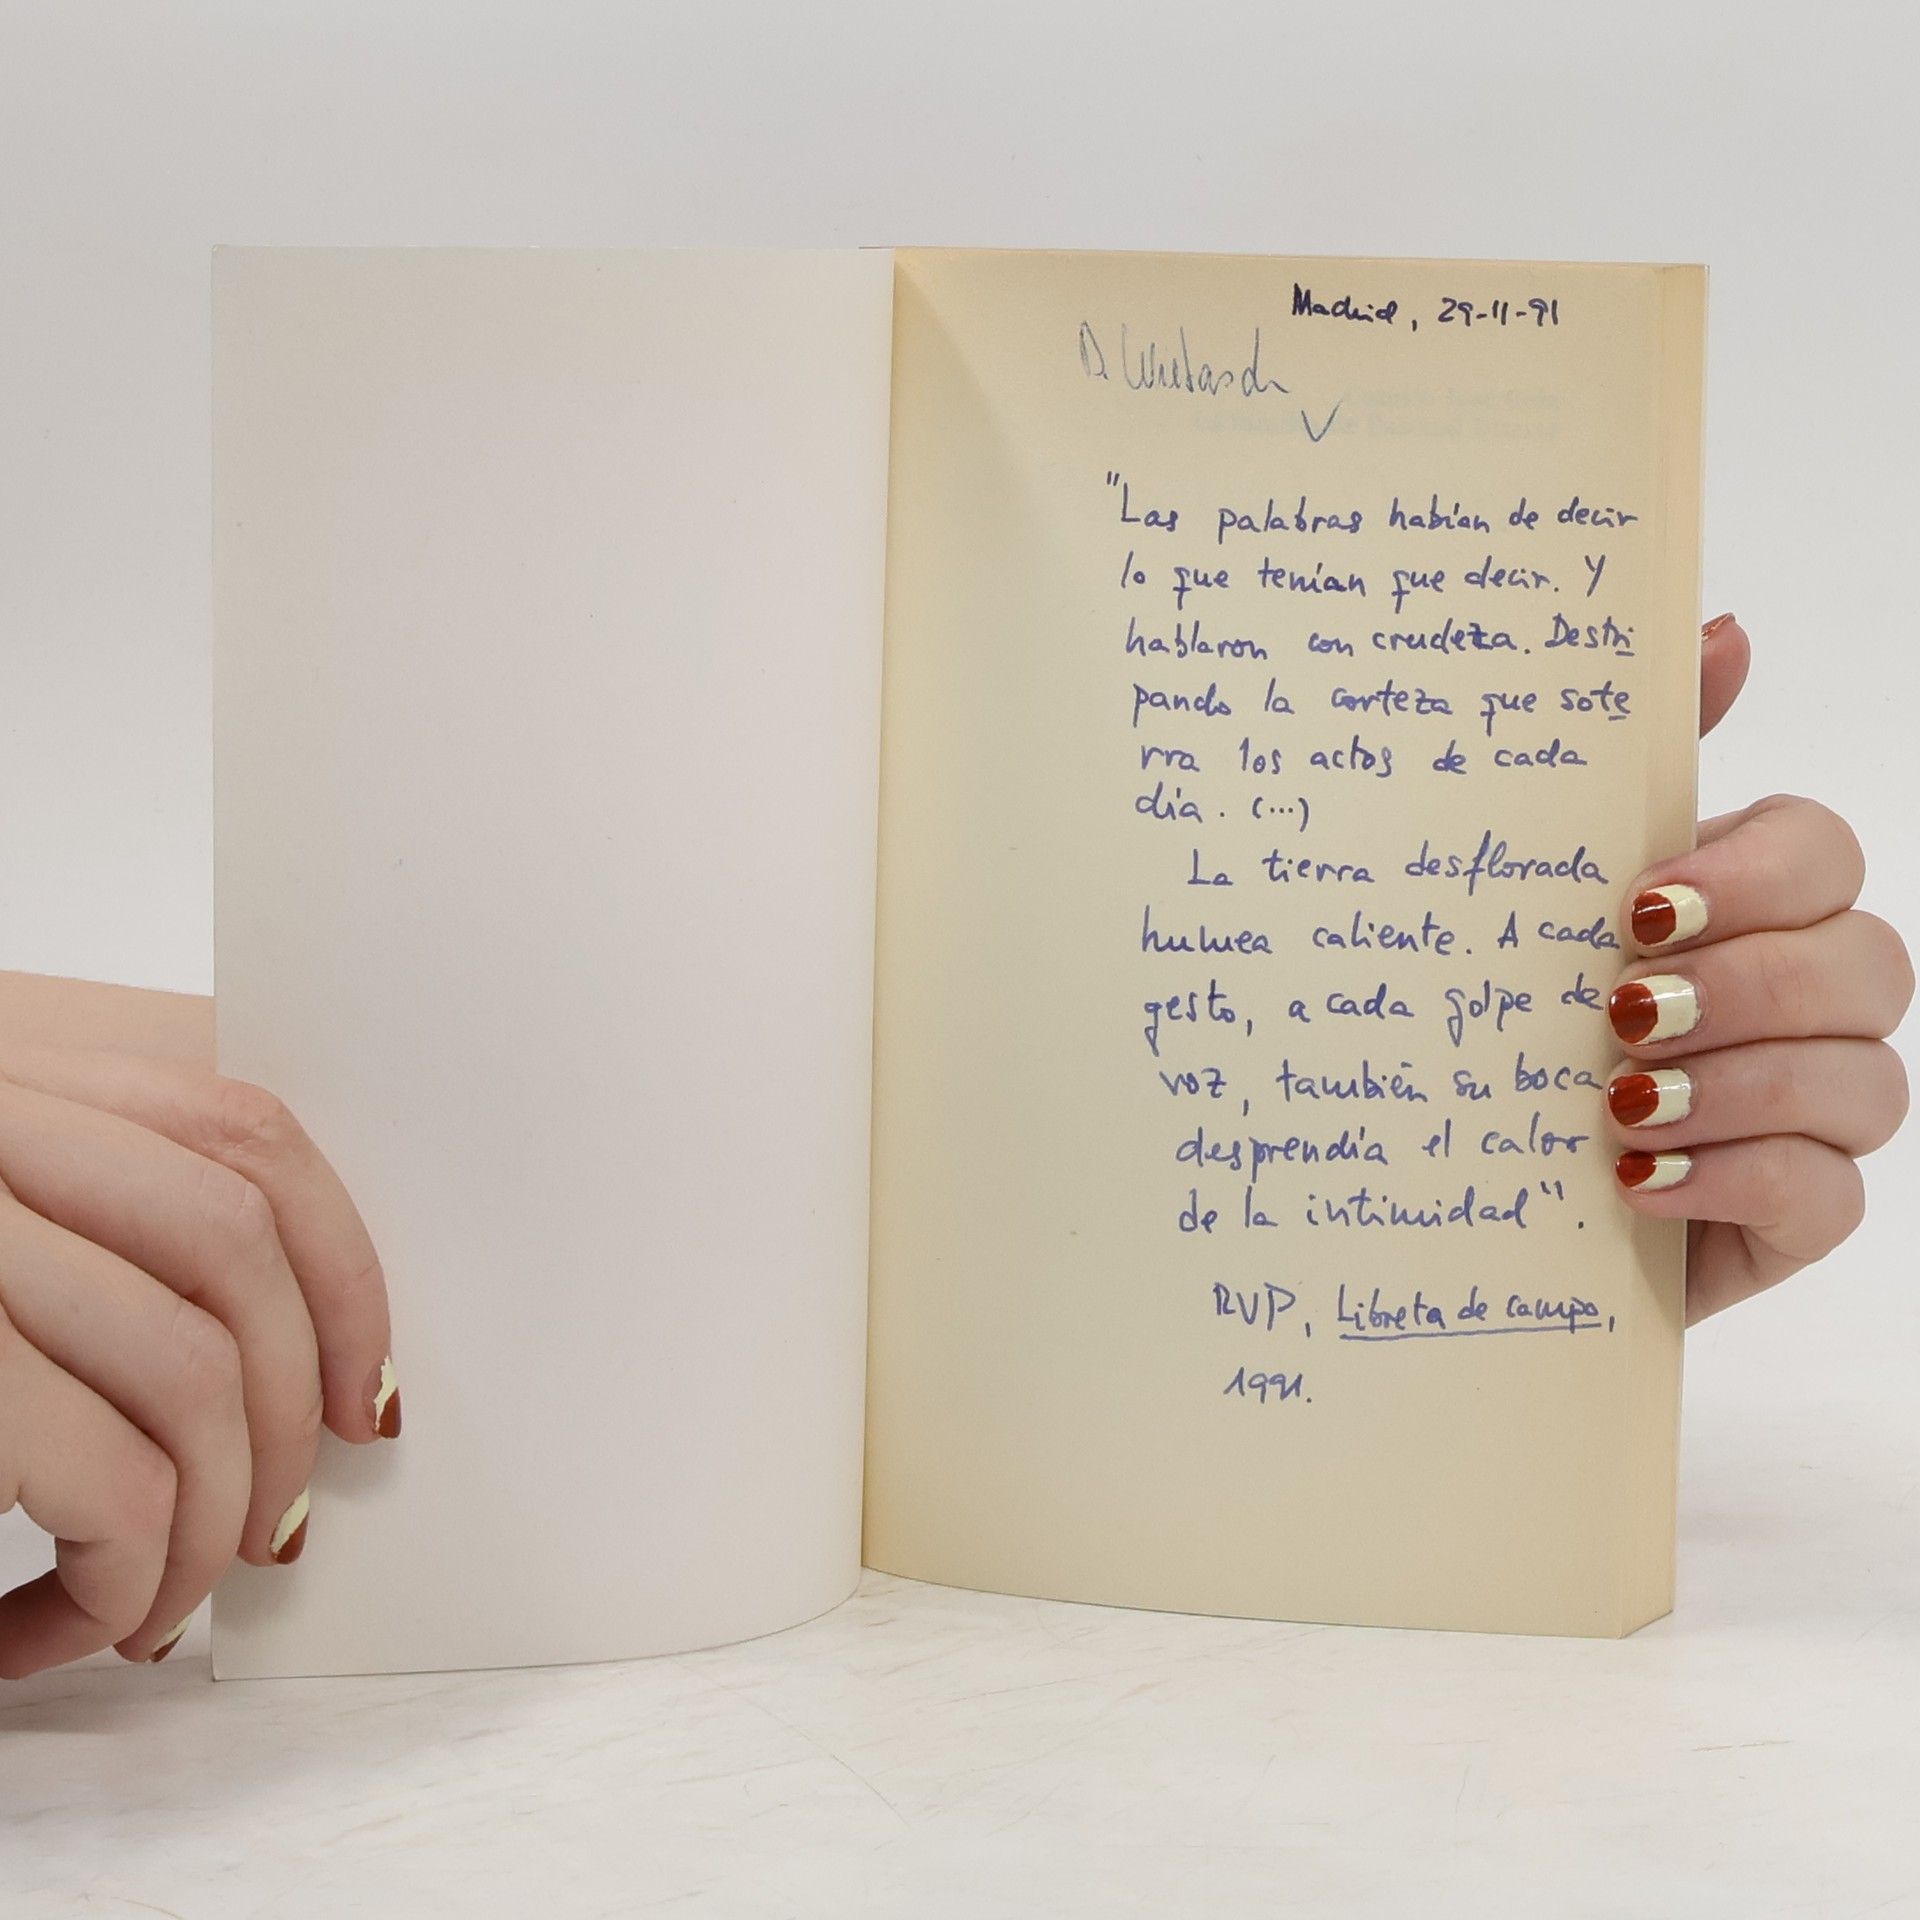 Madrid, 29-11-91
D.
"Las palabras habían de decir
lo que tenían que decir. Y
hablaron con crudeza. Destri
pando la corteza que sote
rra los actos de cada
día. (...)
La tierra desflorada
humea caliente. A cada
gesto, a cada golpe de
voz, también su boca
desprendía el calor
de la intimidad".
RVP, Libreta de campo,
1991.